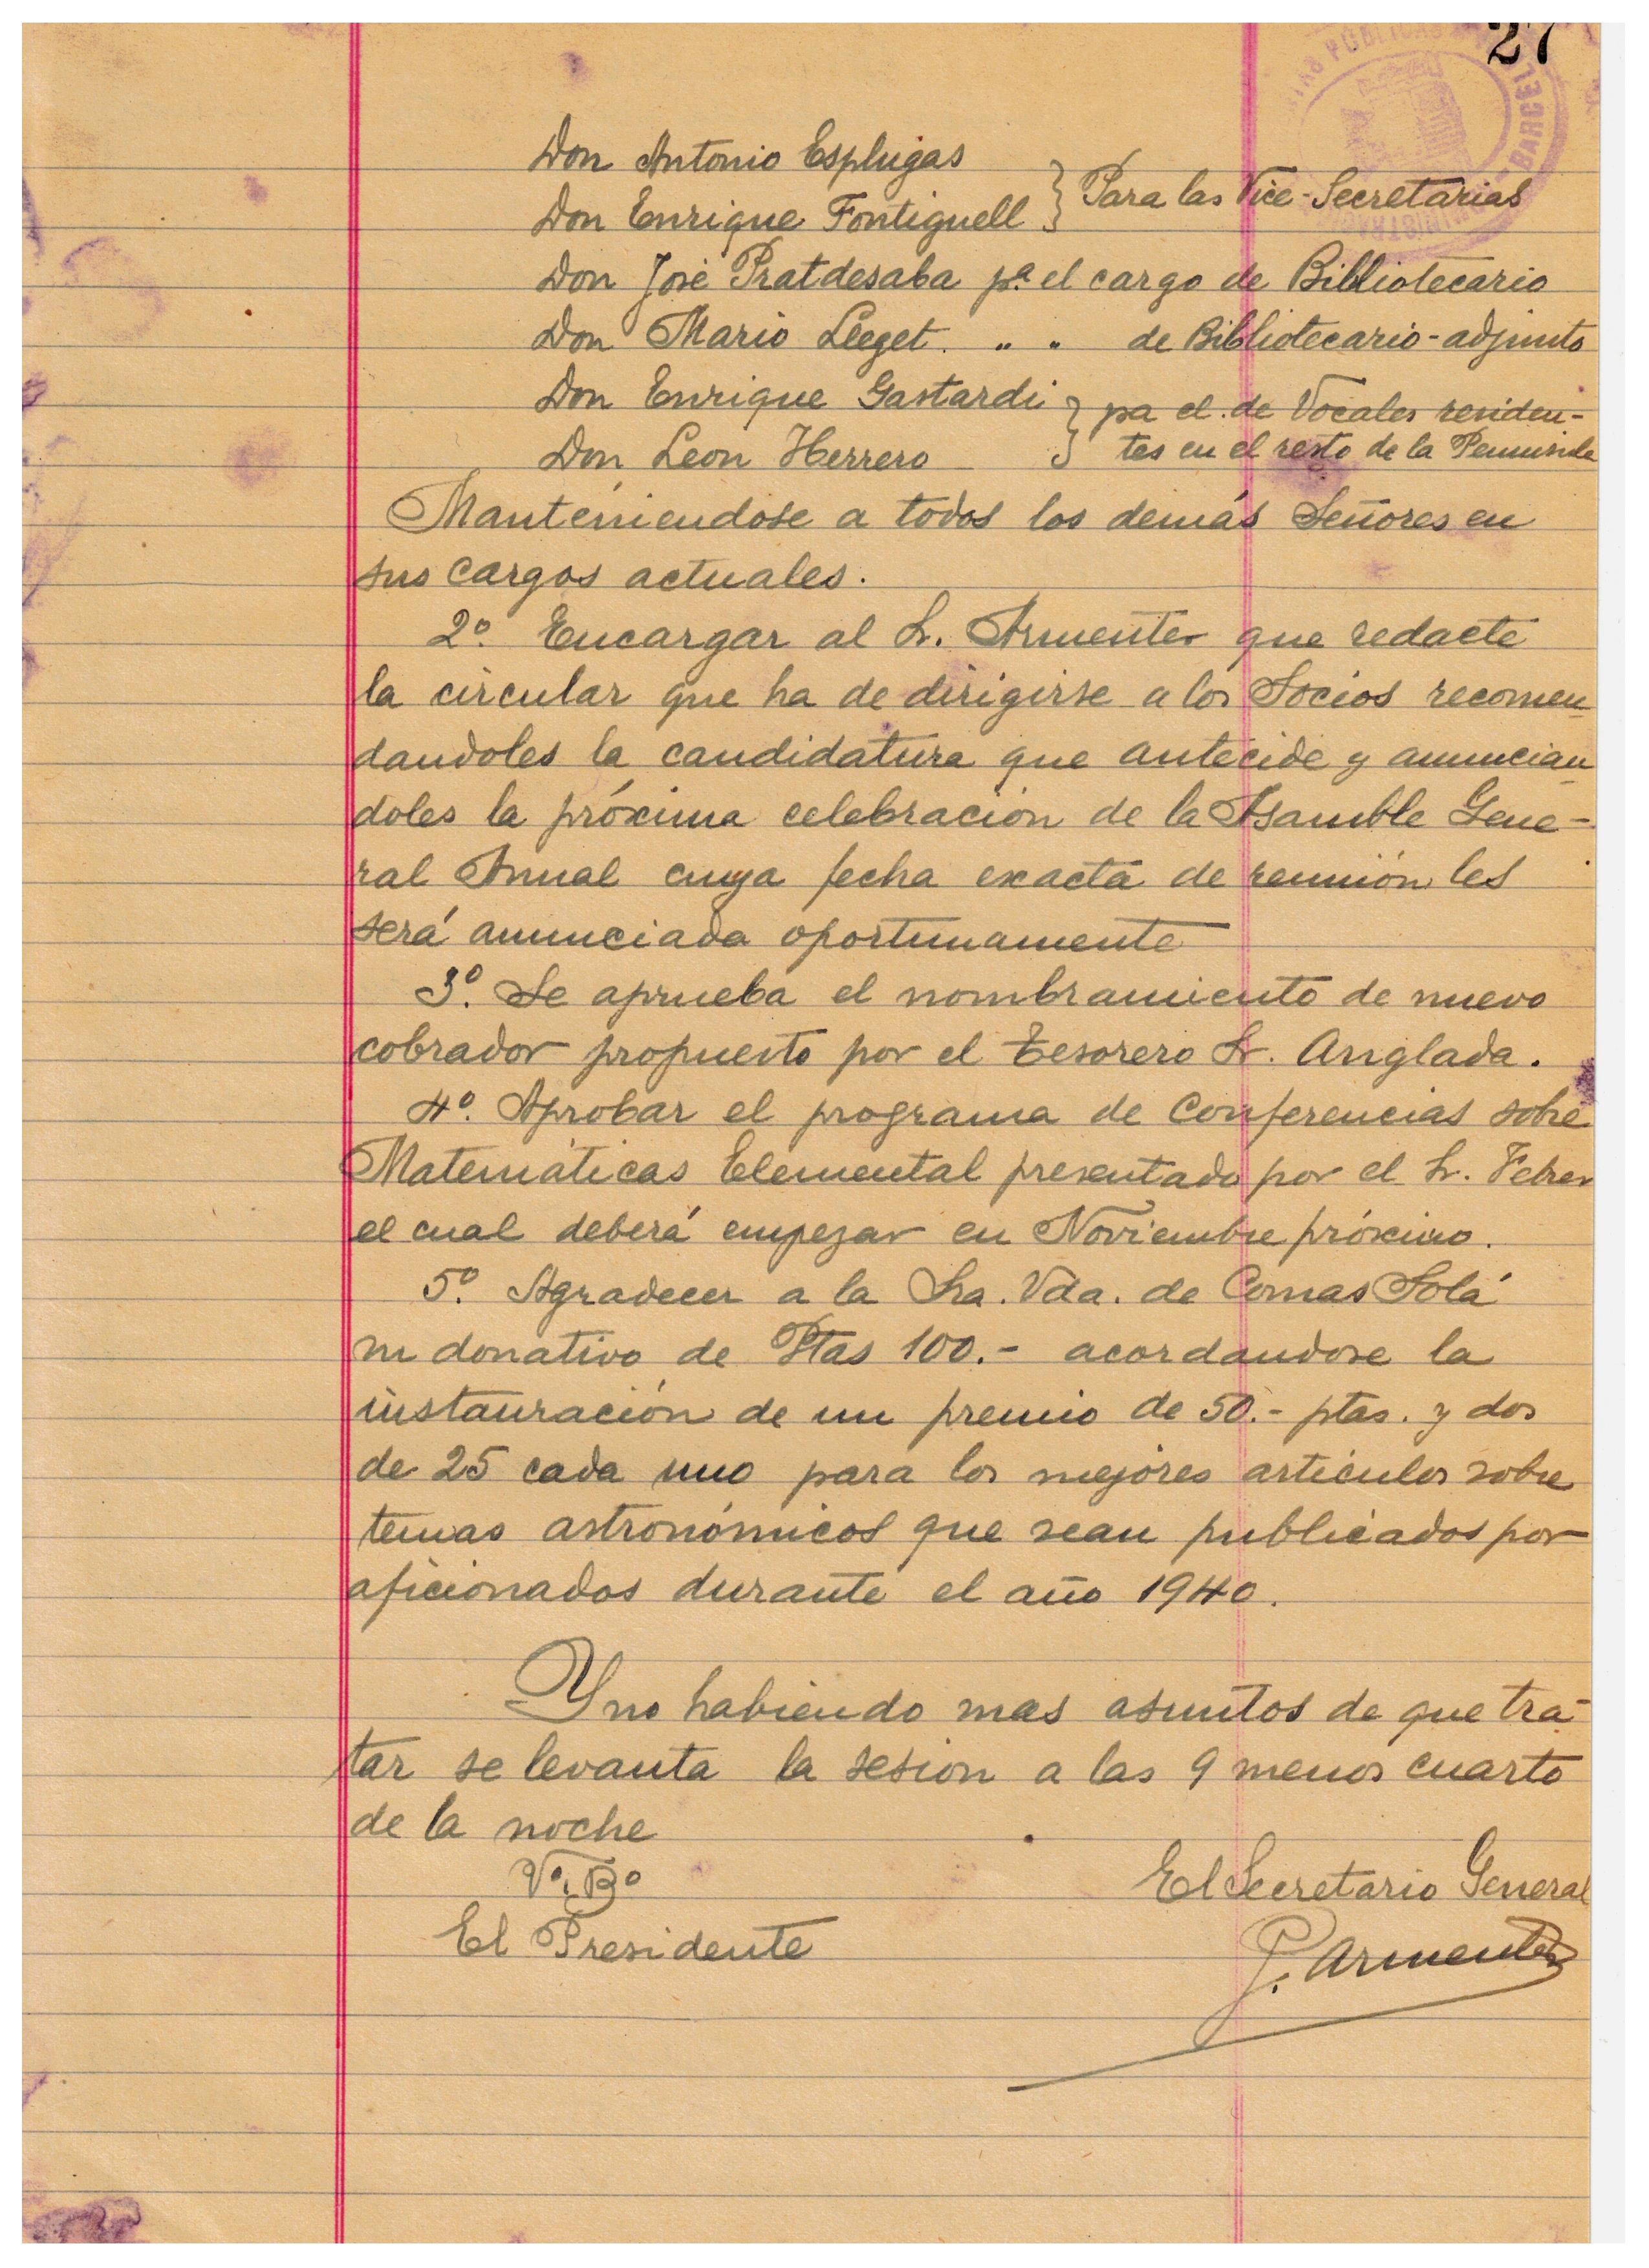 27
Don Antonio Esplugas
Don Enrique Fontiguell } Para las Vice-Secretarias
Don José Pratdesaba pª el cargo de Bibliotecario
Don Mario Lleget. " " de Bibliotecario-adjunto
Don Enrique Gastardi } pa el de Vocales residen-
Don Leon Herrero } tes en el resto de la Peninsula
Manteniendose a todos los demás Señores en
sus cargos actuales.
2º. Encargar al Sr. Armenter que redacte
la circular que ha de dirigirse a los Socios recomen-
dandoles la candidatura que antecide y anuncian-
doles la próxima celebración de la Asamble Gene-
ral Anual cuya fecha exacta de reunión les
será anunciada oportunamente
3º. Se aprueba el nombramiento de nuevo
cobrador propuesto por el Tesorero Sr. Anglada.
4º. Aprobar el programa de Conferencias sobre
Matemáticas Elemental presentado por el Sr. Febrer
el cual deberá empezar en Noviembre próximo.
5º. Agradecer a la Sra. Vda. de Comas Solá
su donativo de Ptas 100.- acordandose la
instauración de un premio de 50.- ptas. y dos
de 25 cada uno para los mejores articulos sobre
temas astronómicos que sean publicados por
aficionados durante el año 1940.
Y no habiendo mas asuntos de que tra-
tar se levanta la sesion a las 9 menos cuarto
de la noche
Vº. Bº
El Secretario General
El Presidente
P. Armenter